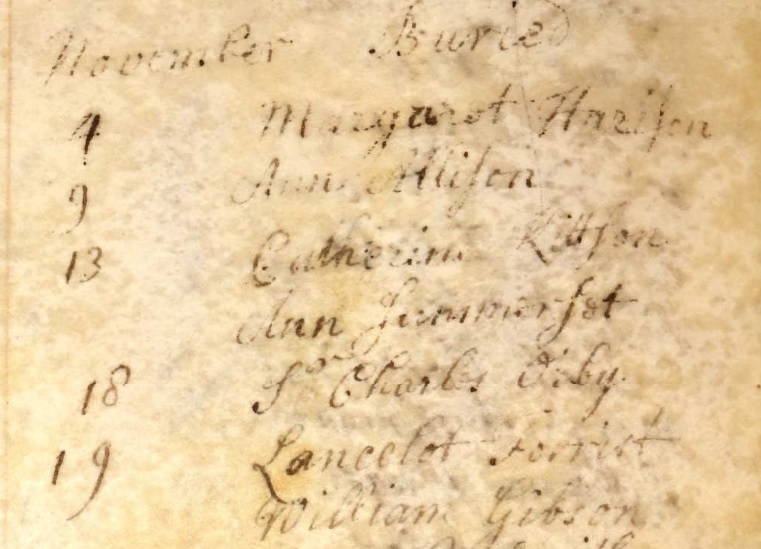 November Buried
4 Margaret Harison
9 Ann Allison
13 Catherine Kittson
Ann Summerset
18 Sr Charles
19 Lancelot Forrist
William Gibson